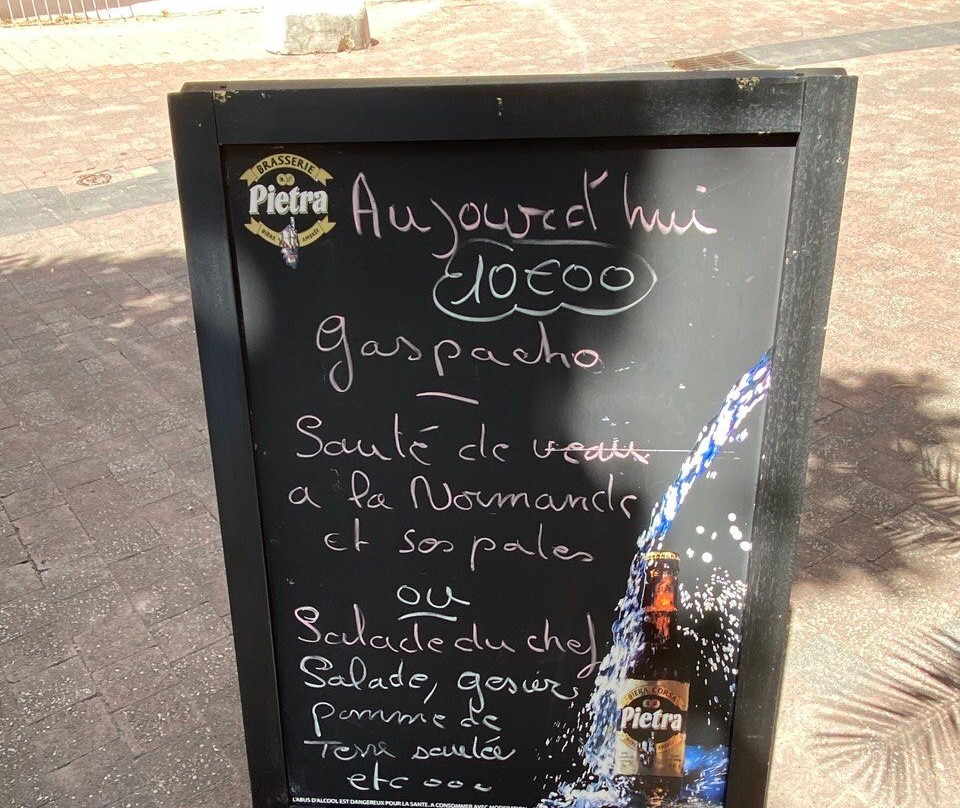 BRASSERIE
Pietra
BIÈRE AMBRÉE
Aujourd'hui
10€00
Gaspacho
Sauté de veau
a la Normande
et ses pates
ou
Salade du chef
Salade, gesier,
pomme de
Terre sautée
etc...
BIERA CORSA
Pietra
L'ABUS D'ALCOOL EST DANGEREUX POUR LA SANTÉ. A CONSOMMER AVEC MODÉRATION